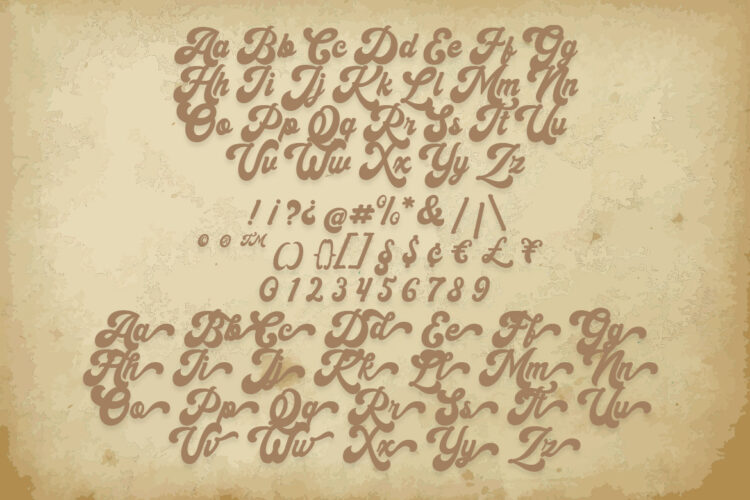 Aa Bb Cc Dd Ee Ff Gg
Hh Ii Jj Kk Ll Mm Nn
Oo Pp Qq Rr Ss Tt Uu
Vv Ww Xx Yy Zz
! ¡ ? ¿ @ # % * & / | \
© ® ™ () {} [] § $ ¢ € £ ¥
0 1 2 3 4 5 6 7 8 9
Aa Bb Cc Dd Ee Ff Gg
Hh Ii Jj Kk Ll Mm Nn
Oo Pp Qq Rr Ss Tt Uu
Vv Ww Xx Yy Zz